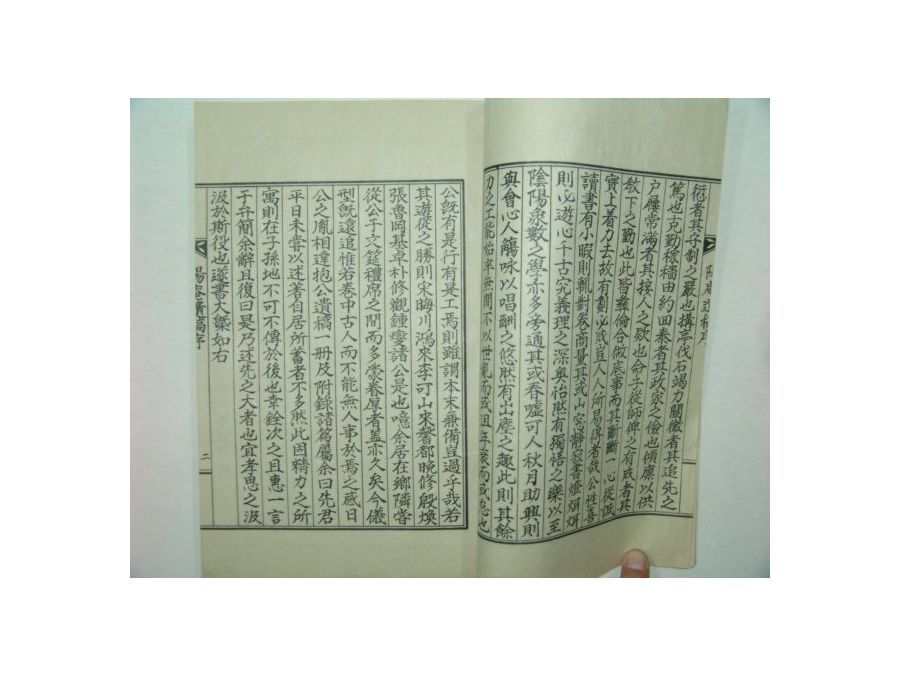 衍者其子制之嚴也搆亭伐石竭力閘徽者其追先之
篤也克勤稼穡由約四泰者其政家之儉也傾廩以供
户屨常滿者其接人之敬也命子從師俾之有成者其
教下之勤也此皆彝倫合做底事而其斷斷一心從誠
實上着力去故有劃必底豈人人所易得者哉公性喜
讀書有小暇則輒對卷商量其或山窓靜寂書燈炯炯
則必遊心千古究義理之深奥怡然有獨悟之樂以至
陰陽象數之學亦多旁通其或春噓可人秋月助興則
與會心人觴咏以唱酬之悠然有出塵之趣此則其餘
力之工能怡率無間不以世亂而或沮年衰而或怠也
公旣有是行有是工焉則雖謂本末兼備豈過乎哉若
其遊從之勝則宋晦川鴻來李可山宋馨都晚修殷煥
張魯岡基卓朴修觀鍾燮諸公是也噫余居在鄉隣當
從公于文筵禮席之間而多蒙眷厚者盖亦久矣今儀
型旣遠追惟若巻中古人而不能無人事於焉之感日
公之胤相達抱公遺稿一册及附錄諸篇屬余曰先君
平日未嘗以述著自居所蓄者不多然此因精力之所
寓則在子孫地不可不傳於後也幸銓次之且惠一言
于弁簡余辭且復曰是乃述先之大者也宜孝思之汲
汲於斯役也遂書大槩如右
陽庵遺稿序
二